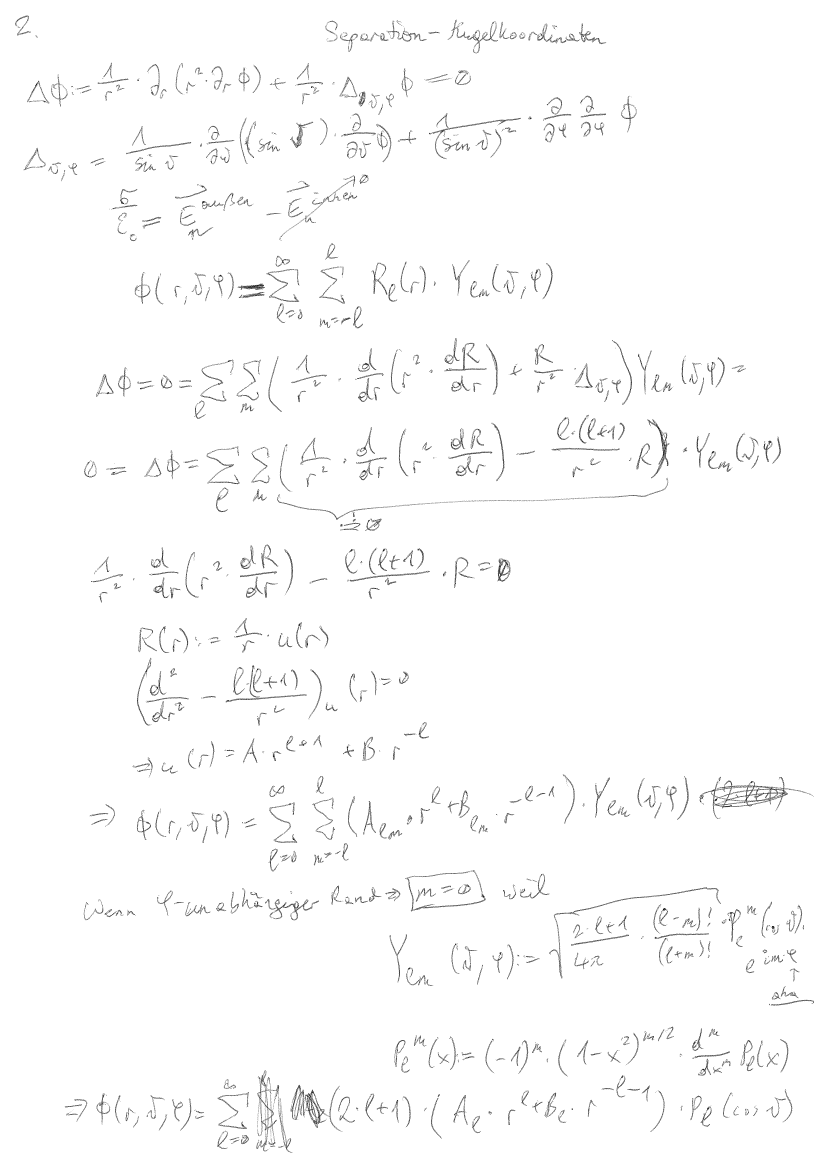 2. Separation - Kugelkoordinaten
Δϕ := 1/r² · ∂r (r² · ∂r ϕ) + 1/r² · Δϑ,φ ϕ = 0
Δϑ,φ = 1/sin ϑ · ∂/∂ϑ ((sin ϑ) · ∂/∂ϑ ϕ) + 1/(sin ϑ)² · ∂/∂φ ∂/∂φ ϕ
σ/ε₀ = E⃗ₙ^außen - E⃗ₙ^innen → 0
ϕ(r,ϑ,φ) = ∑_{l=0}^{∞} ∑_{m=-l}^{l} R_l(r) · Y_lm(ϑ,φ)
Δϕ = 0 = ∑_l ∑_m (1/r² · d/dr (r² · dR/dr) + R/r² · Δϑ,φ) Y_lm(ϑ,φ) =
0 = Δϕ = ∑_l ∑_m (1/r² · d/dr (r² · dR/dr) - l·(l+1)/r² · R) · Y_lm(ϑ,φ)
!= 0
1/r² · d/dr (r² · dR/dr) - l·(l+1)/r² · R = 0
R(r) := 1/r · u(r)
(d²/dr² - l(l+1)/r²) u(r) = 0
⇒ u(r) = A · r^{l+1} + B · r^{-l}
⇒ ϕ(r,ϑ,φ) = ∑_{l=0}^{∞} ∑_{m=-l}^{l} (A_lm · r^l + B_lm · r^{-l-1}) · Y_lm(ϑ,φ)
Wenn φ-unabhängiger Rand ⇒ m=0, weil
Y_lm(ϑ,φ) := √(2·l+1/4π · (l-m)!/(l+m)!) · P_l^m(cos ϑ) ·
e^{imφ}
↑
aha
P_l^m(x) := (-1)^m · (1-x²)^{m/2} · d^m/dx^m P_l(x)
⇒ ϕ(r,ϑ,φ) = ∑_{l=0}^{∞} (2·l+1) · (A_l · r^l + B_l · r^{-l-1}) · P_l(cos ϑ)